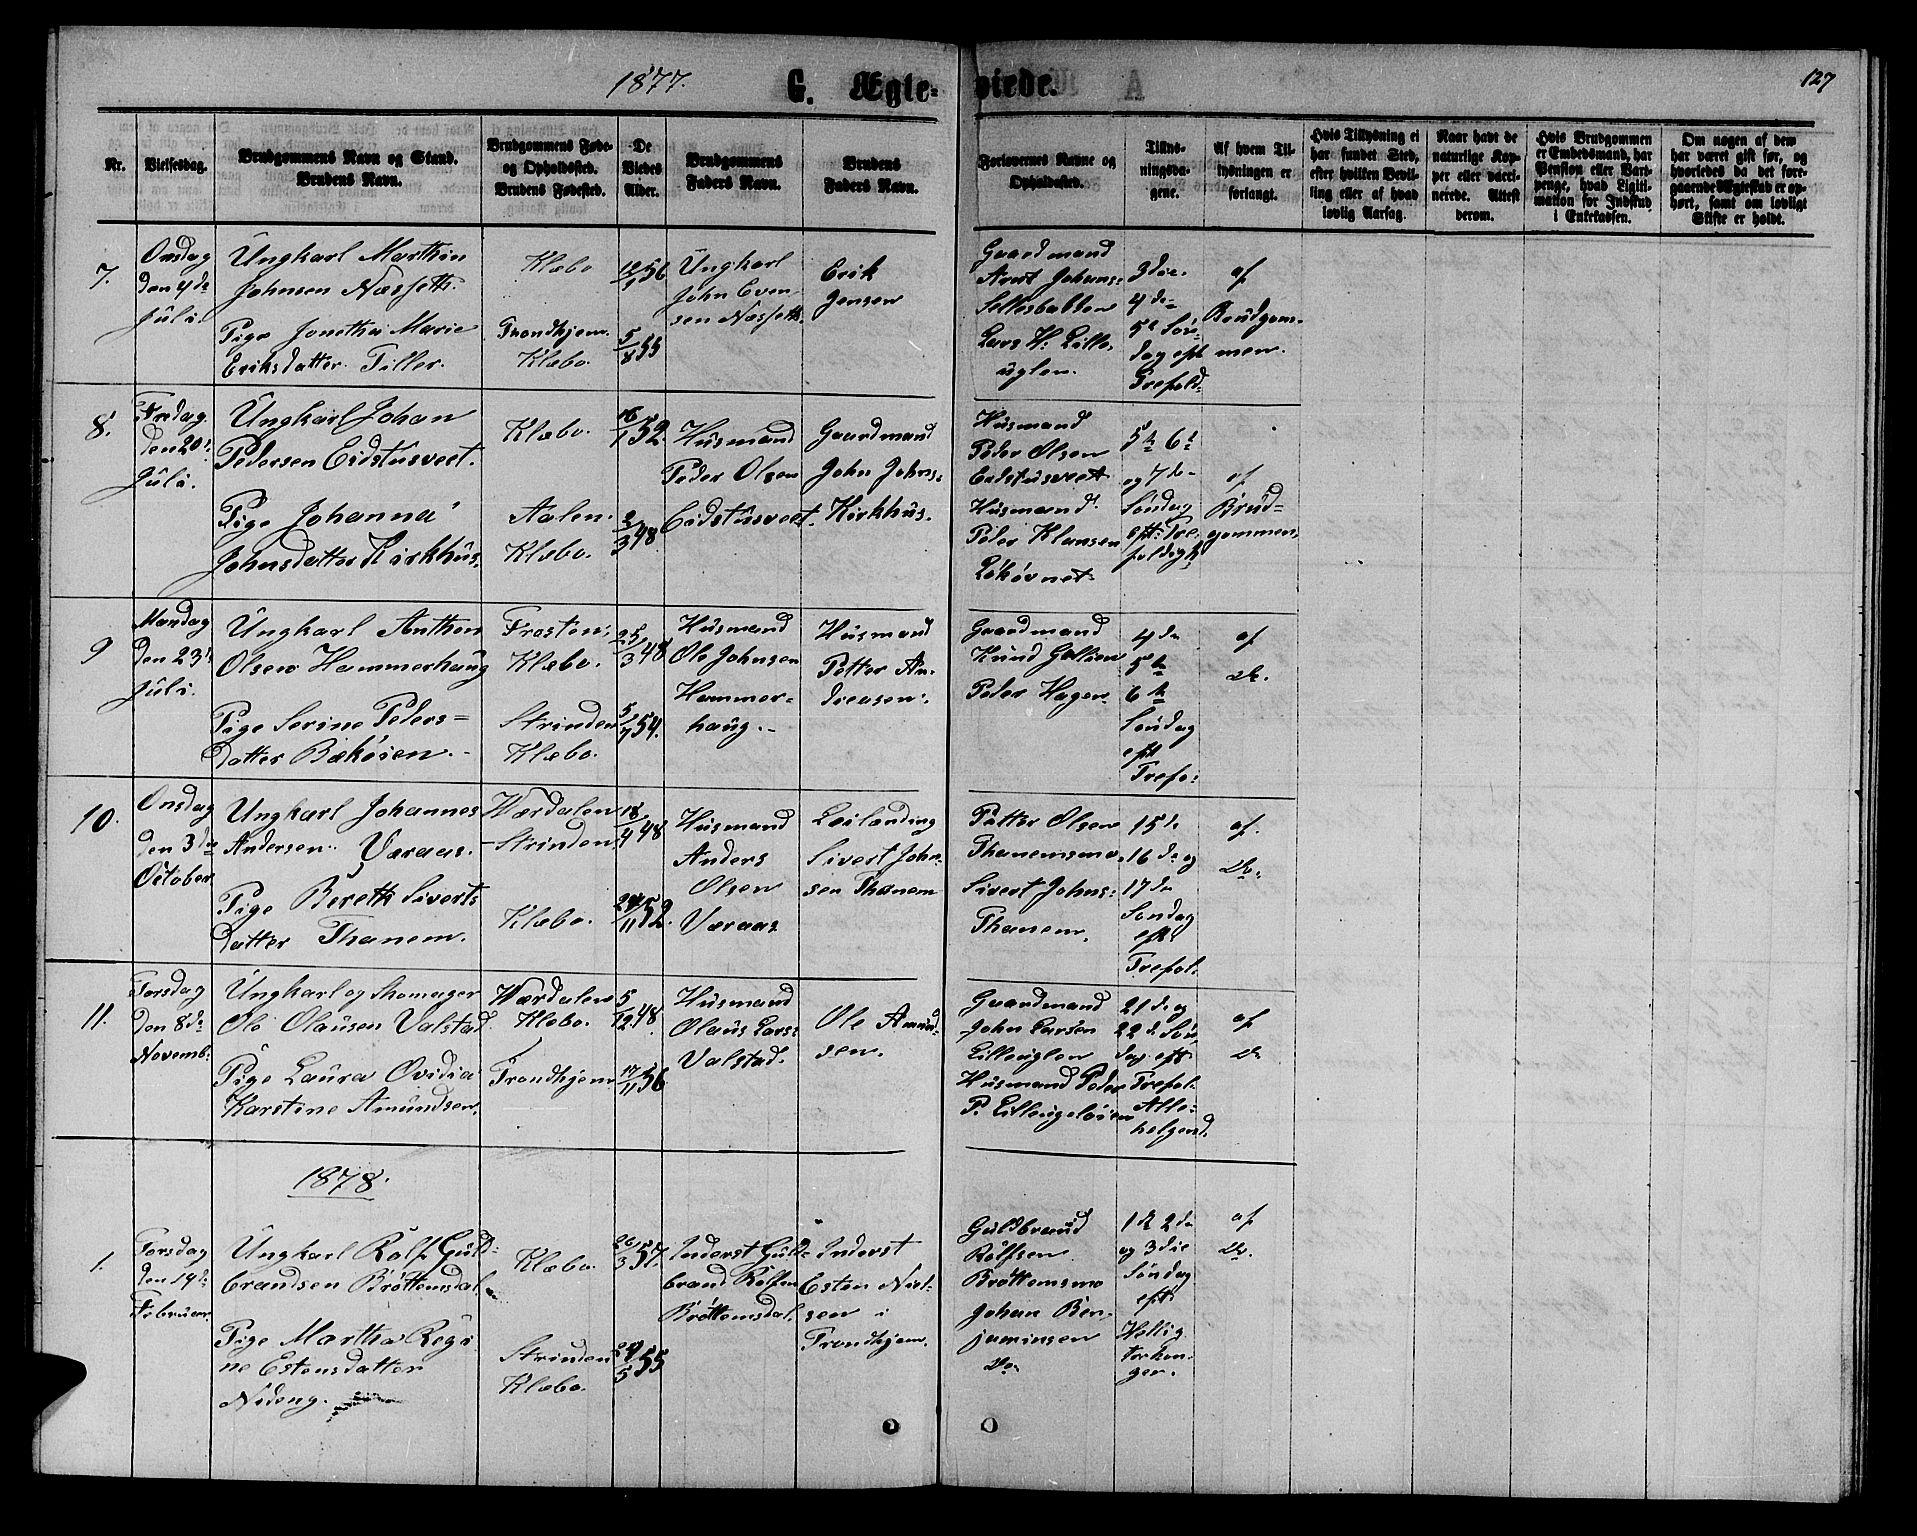 1877. G. Ægte- viede. 127
Nr.
Vielsesdag.
Brudgommens Navn og Stand.
Brudens Navn.
Brudgommens Føde-
og Opholdssted.
Brudens Fødested.
De
Viedes
Alder.
Brudgommens
Faders Navn.
Brudens
Faders Navn.
Forlovernes Navne og
Opholdssted.
Tillys-
ningsda-
gene.
Af hvem Til-
lysningen er
forlangt.
Hvis Tillysning ei
har fundet Sted,
efter hvilken Bevil-
ling eller af hvad
lovlig Aarsag.
Naar havt de
naturlige Kop-
per eller vacci-
nerede. Attest
derom.
Hvis Brudgommen
er Embedsmand, har
Pension eller Vart-
penge, hvad Ligiti-
mation for Indskud
i Enkekassen.
Om nogen af dem
har været gift før, og
hvorledes da det fore-
gaaende Ægteskab er op-
hørt, samt om lovligt
Skifte er holdt.
7.
Onsdag
den 4de
Juli.
Ungkarl Marthin
Johnsen Næsseth.
Pige Jonetha Marie
Eriksdatter Tiller.
Klæbo
Trondhjem.
Klæbo.
12/1 56
5/8 55
Ungkarl
John Even
sen Næsseth.
Erik
Jensen
Gaardmand
Arnt Johans:
Sellesbakken
Lars H. Lille
uglen.
3die.
4de
5te Søn
dag eft
Trefold:
af
Brudgom-
men.
8.
Fredag
den 20de
Juli.
Ungkarl Johan
Pedersen Eidstusveet.
Pige Johanna
Johnsdatter Kirkhus.
Klæbo.
Aalen.
Klæbo.
16/1 52.
2/3 48
Husmand
Peder Olsen
Eidstusveet.
Gaardmand
John Johns:
Kirkhus.
Husmand
Peder Olsen
Eidstusveet
Husmand
Peder Klausen
5te 6te
og 7de
Søndag
eft: Tre
foldigh.
af
Brud=
gommen.
9
Mandag
den 23de
Juli.
Ungkarl Anthon
Olsen Hammerhaug
Pige Serine Peders=
datter Bækøien.
Frosten.
Klæbo.
Strinden
Klæbo.
25/3 48
5/7 54.
Husmand
Ole Johnsen
Hammer-
haug.
Husmand
Petter An-
dreasen.
Gaardmand
Knud Gellien
Peder Hagen
4de
5te
6te
Søndag
eft
Trefo:
af
Do.
10.
Onsdag
den 3die
October
Ungkarl Johannes
Andersen Varaas.
Pige Bereth Siverts
datter Thanem.
Værdalen
Strinden
Klæbo.
18/4 48
24/11 52.
Husmand
Anders
Olsen
Varaas
Leilænding
Sivert John-
sen Thanem
Petter Olsen
Thanemsmo.
Sivert Johns:
Thanem.
15de
16de og
17de
Søndag
eft.
Trefol:
af.
Do.
11.
Torsdag
den 8de
Novemb:
Ungkarl og Skomager
Ole Olausen Valstad.
Pige Laura Ovidia
Karstine Amundsen.
Værdalen
Klæbo.
Trondhjem
5/12 48.
17/11 56
Husmand
Olaus Lars:
Valstad.
Ole Amund-
sen.
Gaardmand
John Larsen
Lilleuglen
Husmand Peder
P. Lilleugeløien
21de og
22de Søn
dag eft
Trefol:
Alle
helgend.
af
Do
1878.
1.
Torsdag
den 14de
Februar.
Ungkarl Rolf Guld-
brandsen Brøttemsdal.
Pige Martha Regi
ne Estensdatter
Nideng.
Klæbo.
Strinden
Klæbo.
26/3 57.
24/5 55
Inderst Guld-
brand Rolfsen
Brøttemsdal.
Inderst
Esten Niel-
sen i
Trondhjem.
Guldbrand
Rolfsen
Brøttemsmo
Johan Ben-
jaminsen
Do.
1ste 2de
og 3die
Søndag
eft
Hellig
trekon-
ger.
af
Do.